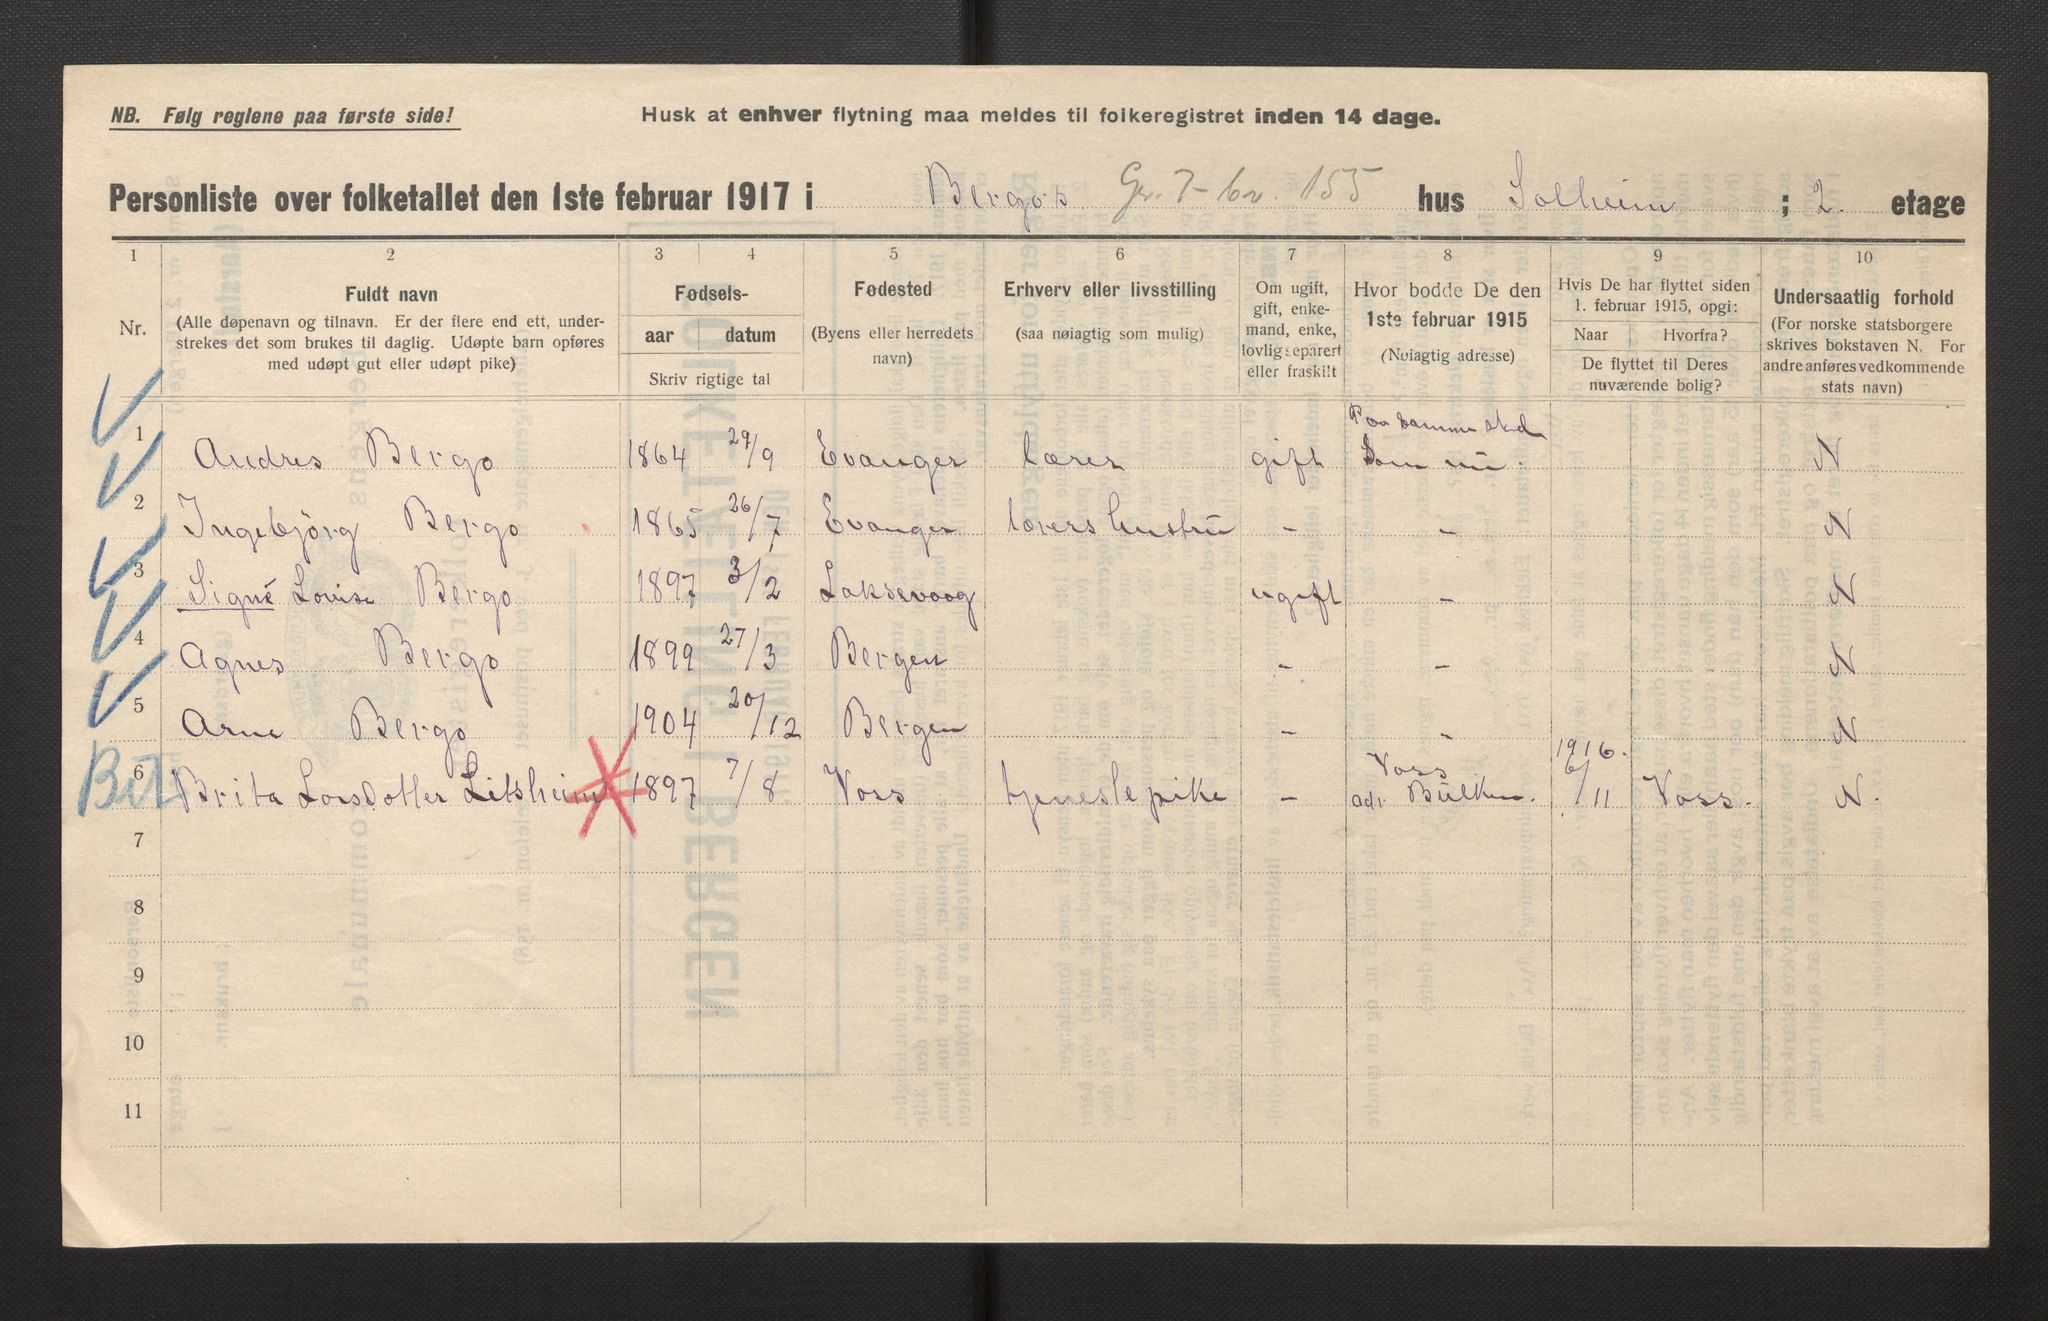 NB. Følg reglene paa første side!
Husk at enhver flytning maa meldes til folkeregistret inden 14 dage.
Personliste over folketallet den 1ste februar 1917 i Bergo's Gr. 7 - br. 155 hus Solheim ; 2. etage
1 2 3 4 5 6 7 8 9 10
Nr.
Fuldt navn
(Alle døpenavn og tilnavn. Er der flere end ett, under-
strekes det som brukes til daglig. Udøpte barn opføres
med udøpt gut eller udøpt pike)
Fødsels-
aar datum
Skriv rigtige tal
Fødested
(Byens eller herredets
navn)
Erhverv eller livsstilling
(saa nøiagtig som mulig)
Om ugift,
gift, enke-
mand, enke,
lovlig separert
eller fraskilt
Hvor bodde De den
1ste februar 1915
(Nøiagtig adresse)
Hvis De har flyttet siden
1. februar 1915, opgi:
Naar Hvorfra?
De flyttet til Deres
nuværende bolig?
Undersaatlig forhold
(For norske statsborgere
skrives bokstaven N. For
andre anføres vedkommende
stats navn)
Paa samme sted
1 Andres Bergo 1864 29/9 Evanger lærer gift Som nu. N
2 Ingebjörg Bergo 1865 26/7 Evanger lærers hustru - - N
3 Signe Lovise Bergo 1897 3/2 Laksevaag ugift - N
4 Agnes Bergo 1899 27/3 Bergen - - N
5 Arne Bergo 1904 20/12 Bergen - - N
Voss 1916.
Bet. 6 Brita Larsdotter Litsheim 1897 7/8 Voss tjenestepike - adr. Bulken. 6/11 Voss. N.
7
8
9
10
11